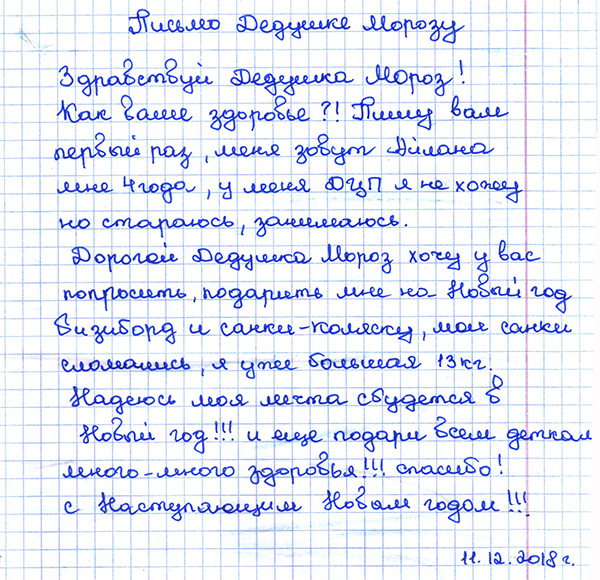 Письмо Дедушке Морозу
Здравствуй Дедушка Мороз!
Как ваше здоровье?! Пишу вам
первый раз, меня зовут Айлана
мне 4 года, у меня ДЦП я не хожу
но стараюсь, занимаюсь.
Дорогой Дедушка Мороз хочу у вас
попросить, подарить мне на Новый год
Бизиборд и санки-коляску, мои санки
сломались, я уже большая 13 кг.
Надеюсь моя мечта сбудется в
Новый год!!! и еще подари всем деткам
много-много здоровья!!! спасибо!
с Наступающим Новым годом!!!
11.12.2018 г.